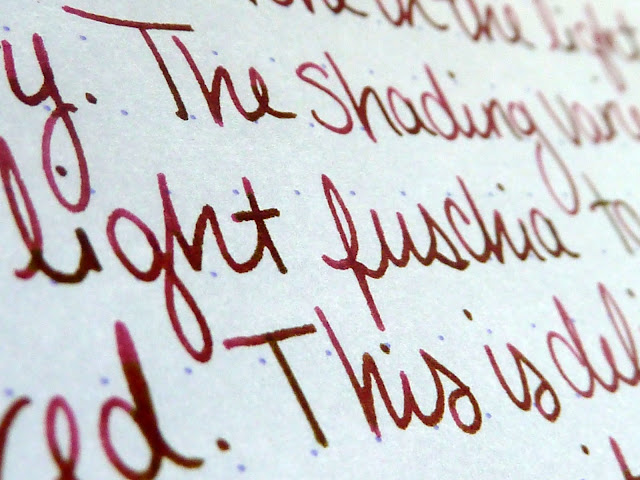 in the light
y. The shading vari
light fuschia to
red. This is deli